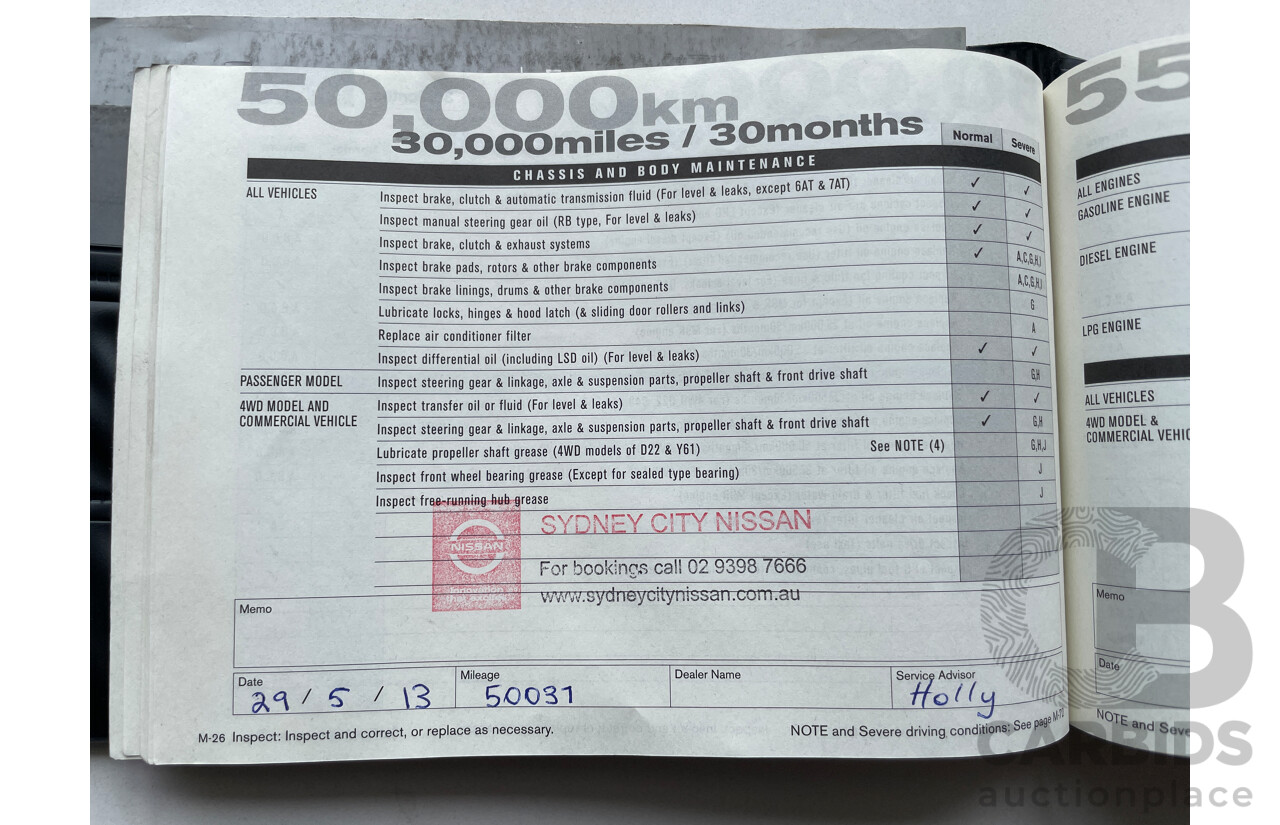 50,000km
30,000miles / 30months
Normal Severe
CHASSIS AND BODY MAINTENANCE
ALL VEHICLES Inspect brake, clutch & automatic transmission fluid (For level & leaks, except 6AT & 7AT) ✓ ✓
Inspect manual steering gear oil (RB type, For level & leaks) ✓ ✓
Inspect brake, clutch & exhaust systems ✓ ✓
Inspect brake pads, rotors & other brake components ✓ A,C,G,H,I
Inspect brake linings, drums & other brake components A,C,G,H,I
Lubricate locks, hinges & hood latch (& sliding door rollers and links) G
Replace air conditioner filter A
Inspect differential oil (including LSD oil) (For level & leaks) ✓ ✓
PASSENGER MODEL Inspect steering gear & linkage, axle & suspension parts, propeller shaft & front drive shaft G,H
4WD MODEL AND
COMMERCIAL VEHICLE
Inspect transfer oil or fluid (For level & leaks) ✓ ✓
Inspect steering gear & linkage, axle & suspension parts, propeller shaft & front drive shaft ✓ G,H
Lubricate propeller shaft grease (4WD models of D22 & Y61) See NOTE (4) G,H,J
Inspect front wheel bearing grease (Except for sealed type bearing) J
Inspect free-running hub grease J
NISSAN
Innovation
that excites
SYDNEY CITY NISSAN
For bookings call 02 9398 7666
www.sydneycitynissan.com.au
Memo
Date 29 / 5 / 13
Mileage 50031
Dealer Name
Service Advisor Holly
M-26 Inspect: Inspect and correct, or replace as necessary.
NOTE and Severe driving conditions: See page M-7
55
ALL ENGINES
GASOLINE ENGINE
DIESEL ENGINE
LPG ENGINE
ALL VEHICLES
4WD MODEL &
COMMERCIAL VEHIC
Memo
Date
NOTE and Seve
CB
CARBIDS
auctionplace